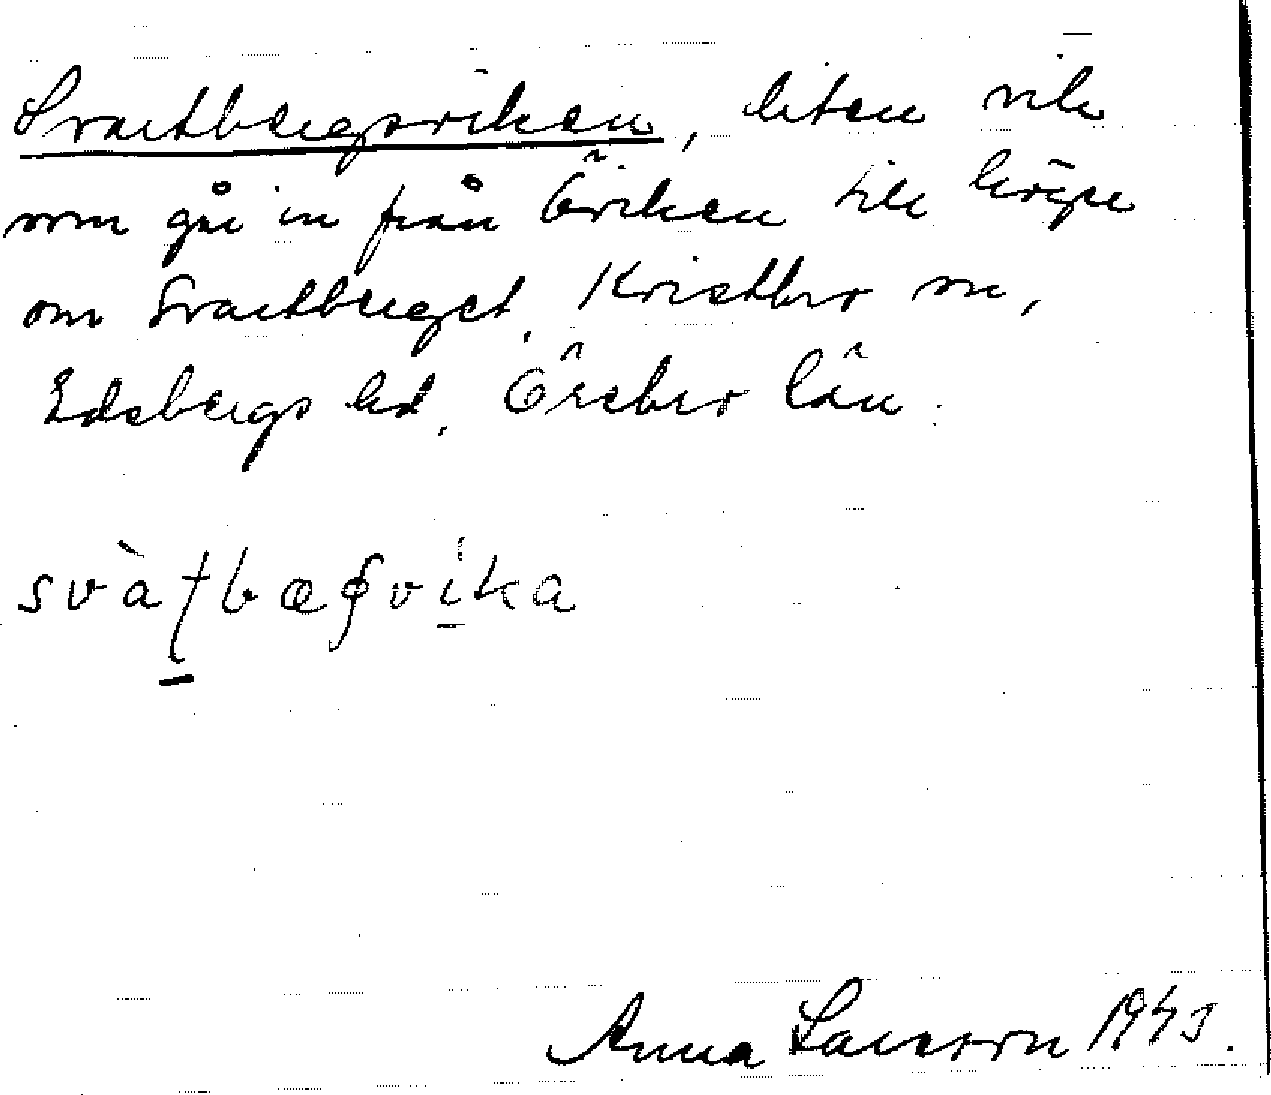 Svartbergsviken, liten vik
som går in från Örviken till höger
om Svartberget, Kvistbro sn,
Edsbergs hd, Örebro län.
svàtbæɡvika
Anna Larsson 1943.